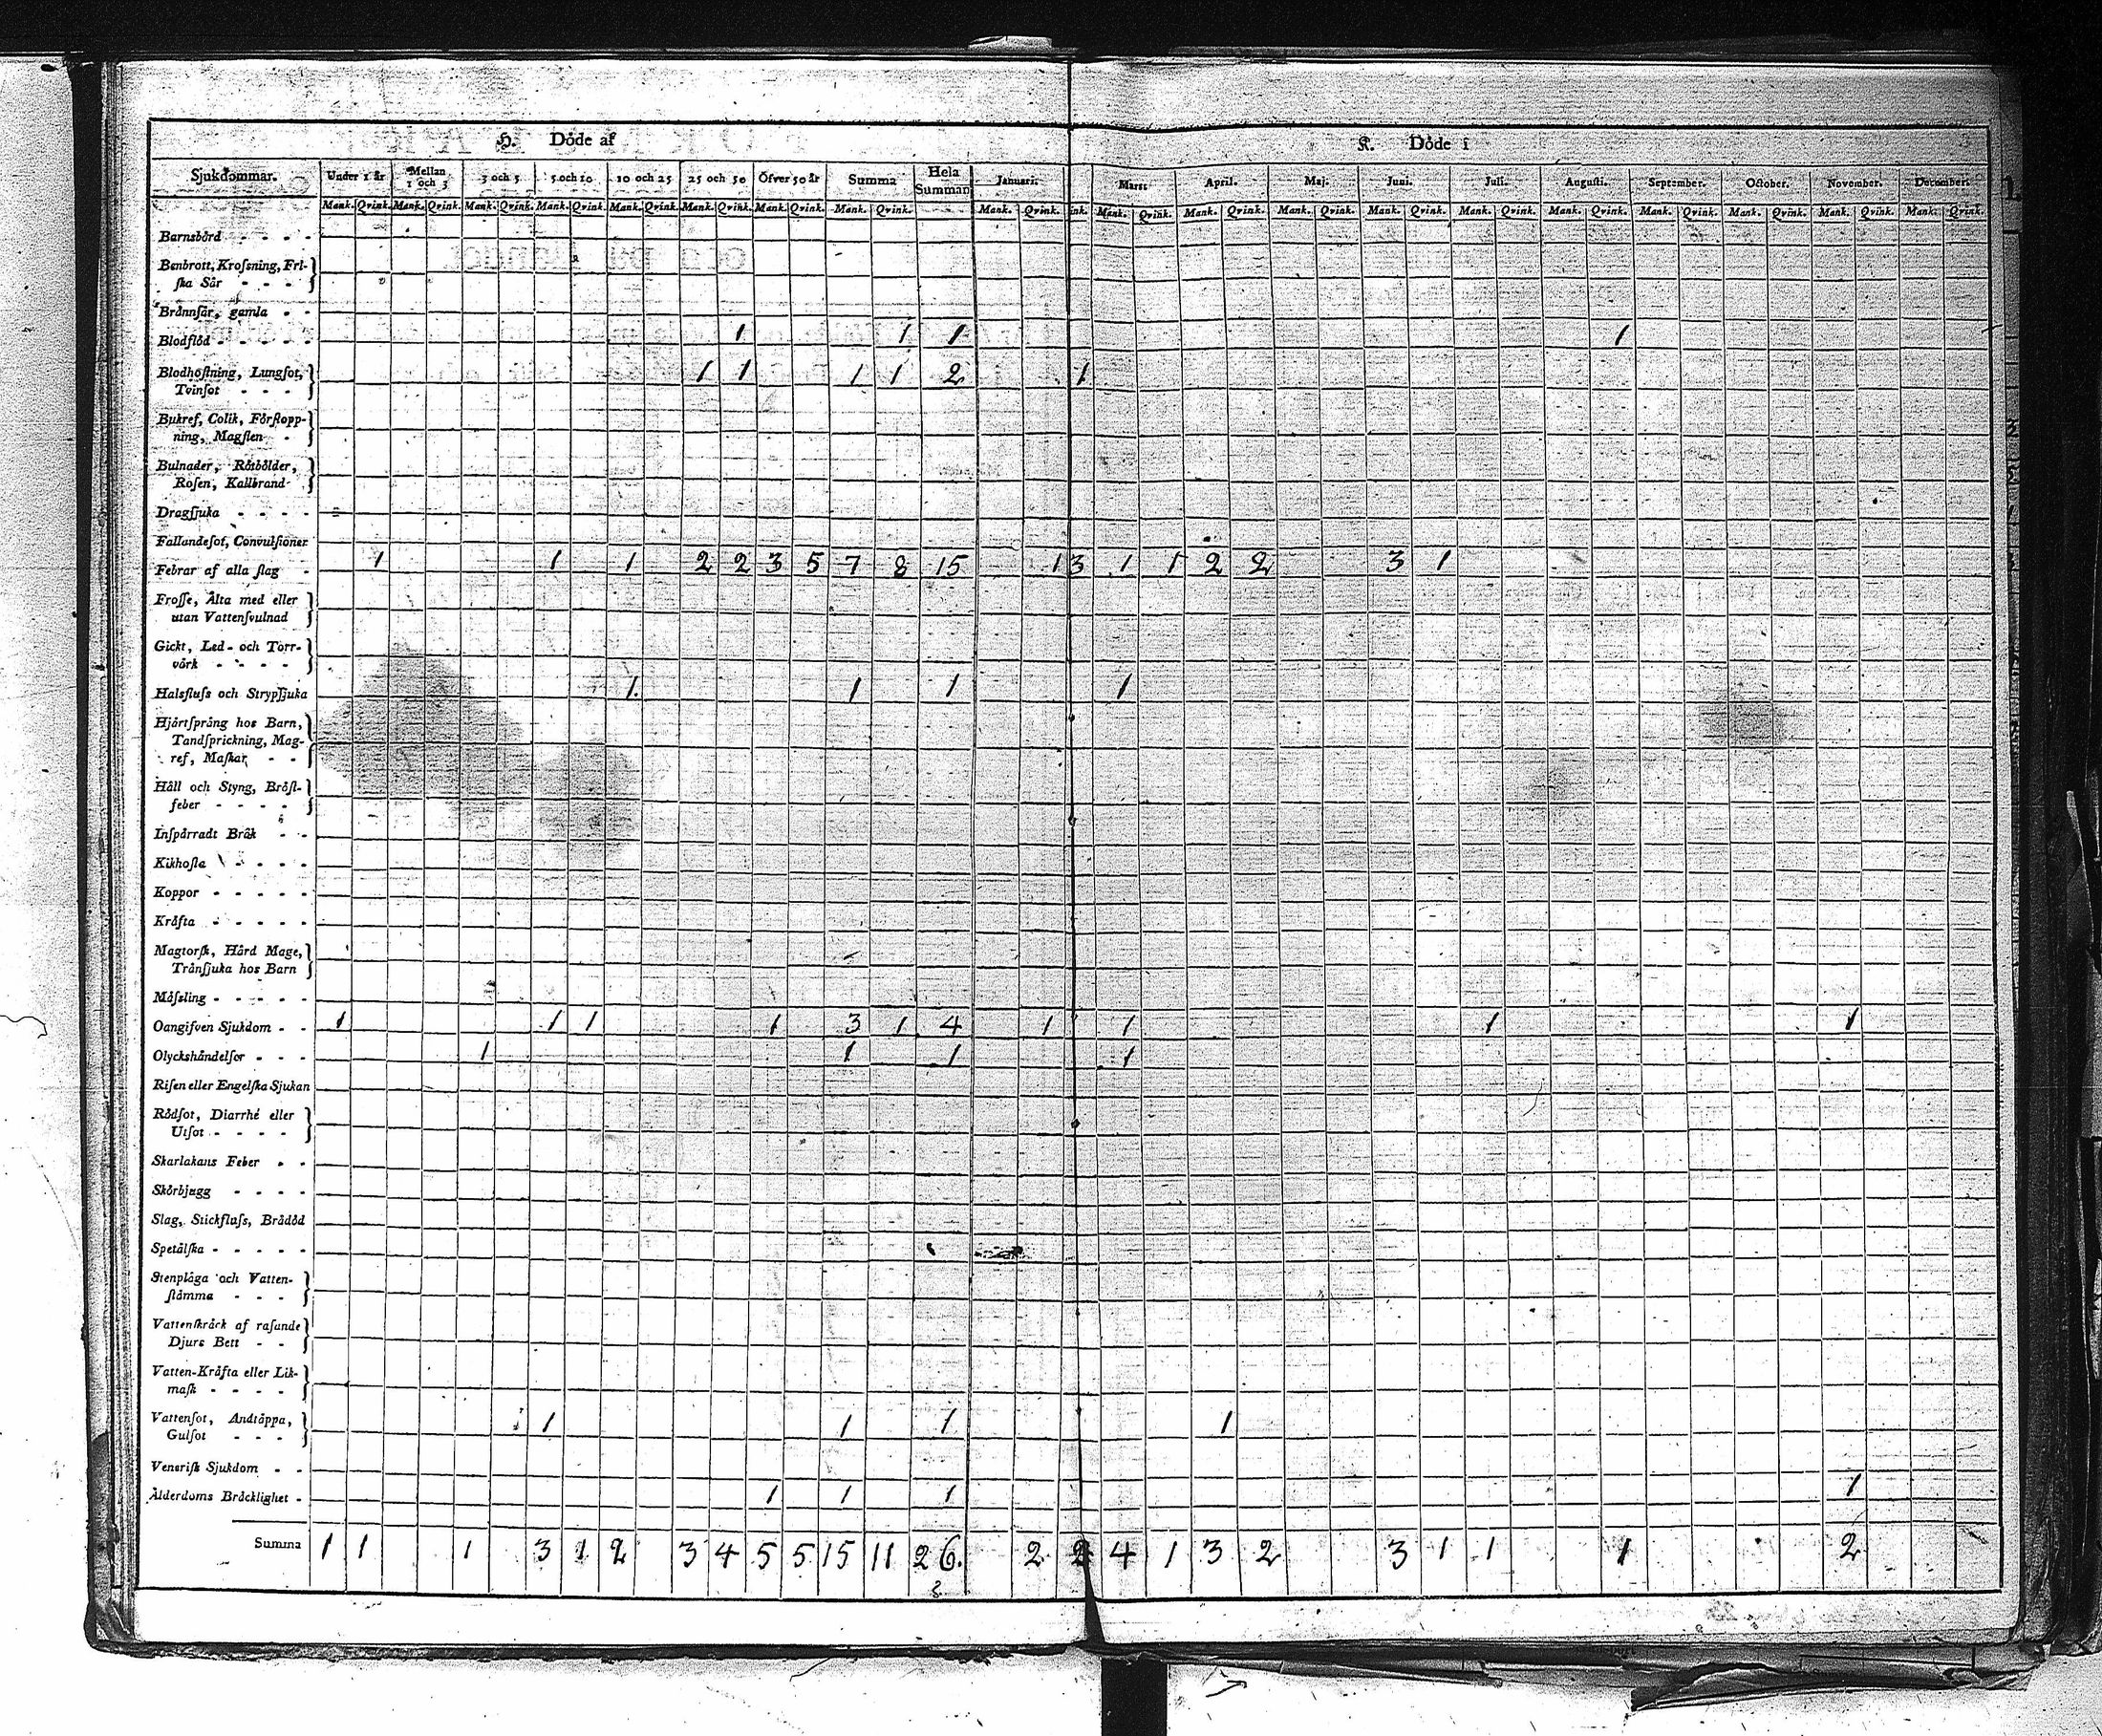 H. Döde af K. Döde i
Sjukdommar. Under 1 år Mellan 1 och 3 3 och 5 5 och 10 10 och 25 25 och 50 Öfver 50 år Summa Hela Summan Januari. Mars. April. Maj. Juni. Juli. Augusti. September. October. November. December.
Mank. Qvink. Mank. Qvink. Mank. Qvink. Mank. Qvink. Mank. Qvink. Mank. Qvink. Mank. Qvink. Mank. Qvink. Mank. Qvink. ink. Mank. Qvink. Mank. Qvink. Mank. Qvink. Mank. Qvink. Mank. Qvink. Mank. Qvink. Mank. Qvink. Mank. Qvink. Mank. Qvink. Mank. Qvink.
Barnsbörd
Benbrott, Krossning, Fri-
ska Sår
Brännsår, gamla
Blodflöd 1 1 1 1
Blodhostning, Lungsot,
Tvinsot 1 1 1 1 2 1
Bukref, Colik, Förstopp-
ning, Magsten
Bulnader, Rötbölder,
Rosen, Kallbrand
Dragsjuka
Fallandesot, Convulsioner
Febrar af alla slag 1 1 1 2 2 3 5 7 8 15 1 3 1 1 2 2 3 1
Frosse, Älta med eller
utan Vattensvulnad
Gickt, Led- och Torr-
värk
Halsfluss och Strypsjuka 1 1 1 1
Hjärtsprång hos Barn,
Tandsprickning, Mag-
ref, Maskar
Håll och Styng, Bröst-
feber
Inspärradt Bråk
Kikhosta
Koppor
Kräfta
Magtorsk, Hård Mage,
Tränsjuka hos Barn
Mässling
Oangifven Sjukdom 1 1 1 1 3 1 4 1 1 1 1
Olyckshändelser 1 1 1 1
Risen eller Engelska Sjukan
Rödsot, Diarrhé eller
Utsot
Skarlakans Feber
Skörbjugg
Slag, Stickfluss, Brådöd
Spetälska
Stenplåga och Vatten-
stämma
Vattenskräck af rasande
Djurs Bett
Vatten-Kräfta eller Lik-
mask
Vattensot, Andtäppa,
Gulsot 1 1 1 1
Venerisk Sjukdom
Ålderdoms Bräcklighet 1 1 1 1
Summa 1 1 1 3 1 2 3 4 5 5 15 11 26. 2 4 1 3 2 3 1 1 1 2